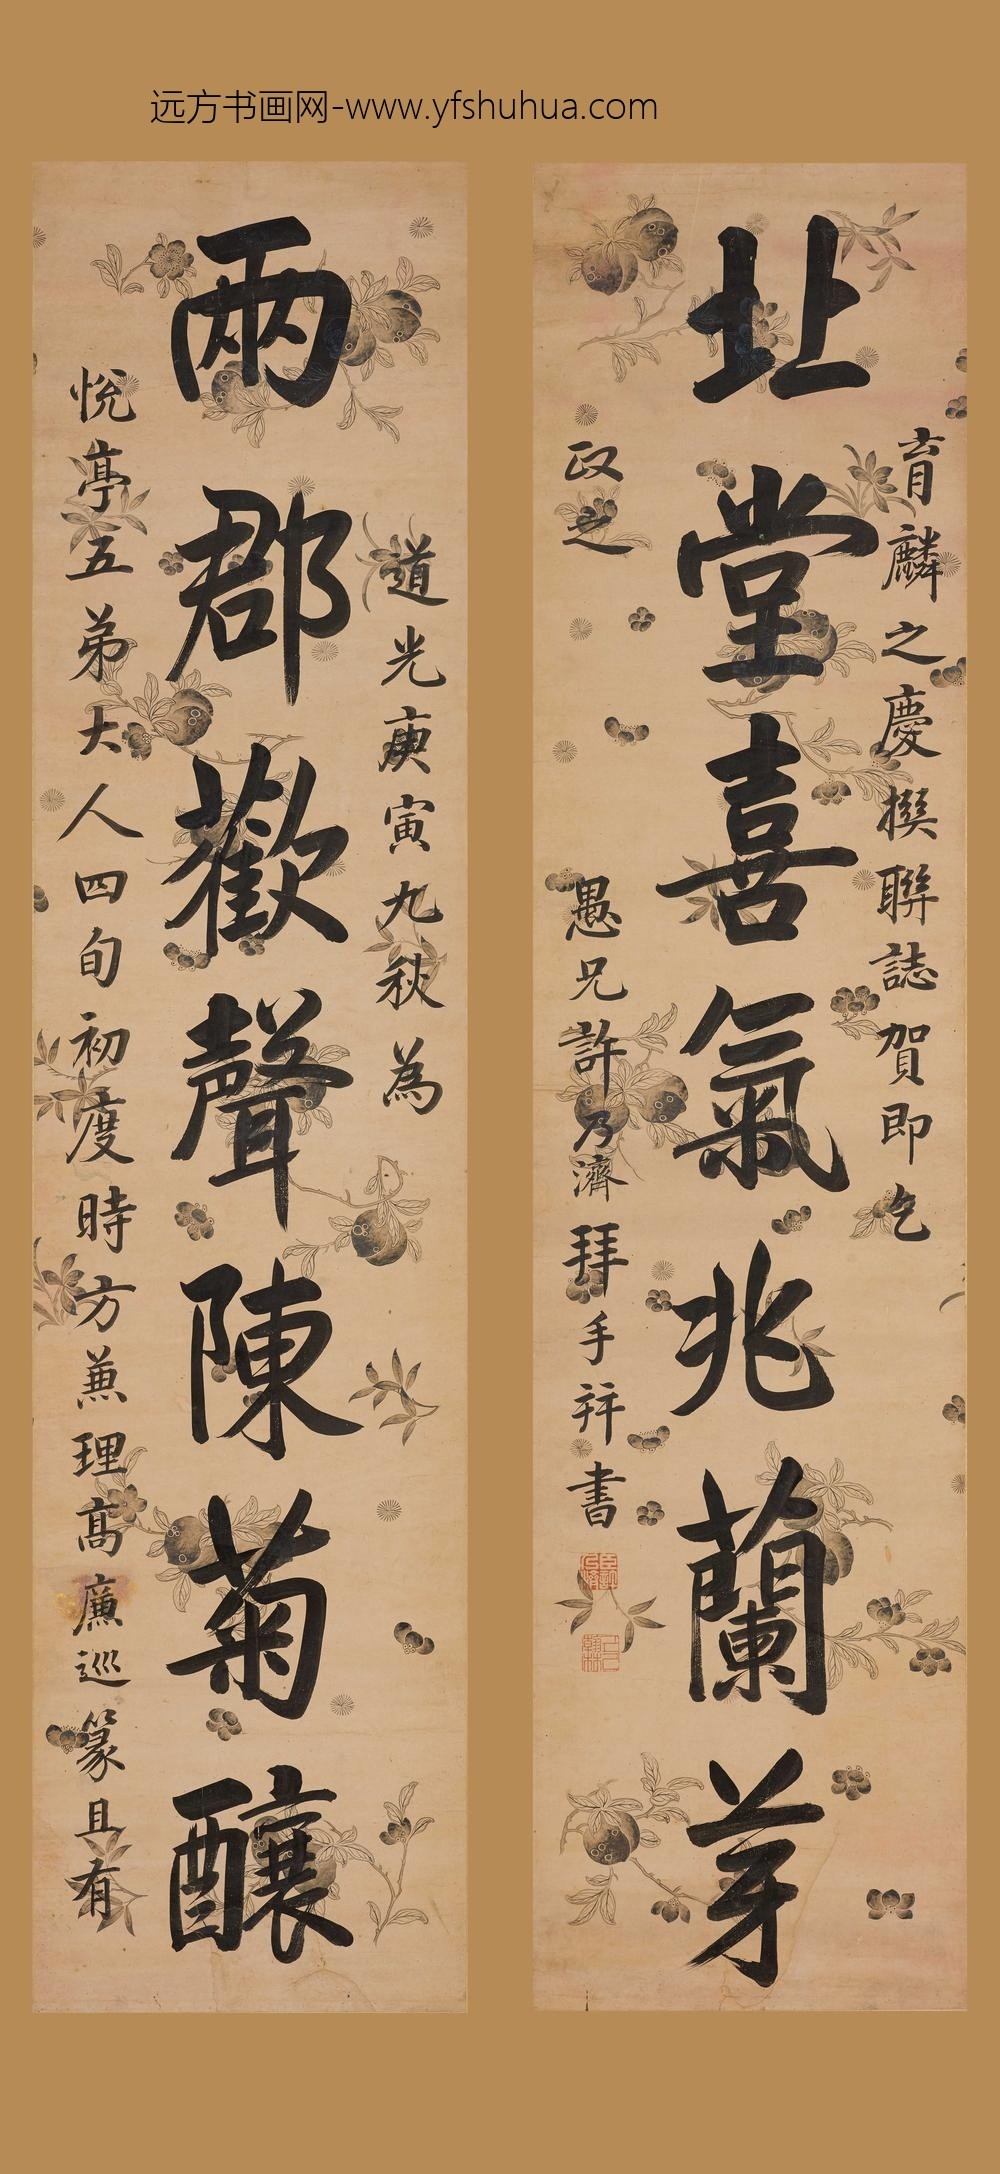 远方书画网-www.yfshuhua.com
道光庚寅九秋為
兩郡歡聲陳菊釀
悅亭五弟大人四旬初度時方蒹理高廉巡篆且有
育麟之慶撰聯誌賀即乞
北堂喜氣兆蘭芽
政之
愚兄許乃濟拜手并書
臣許乃濟
己巳翰林